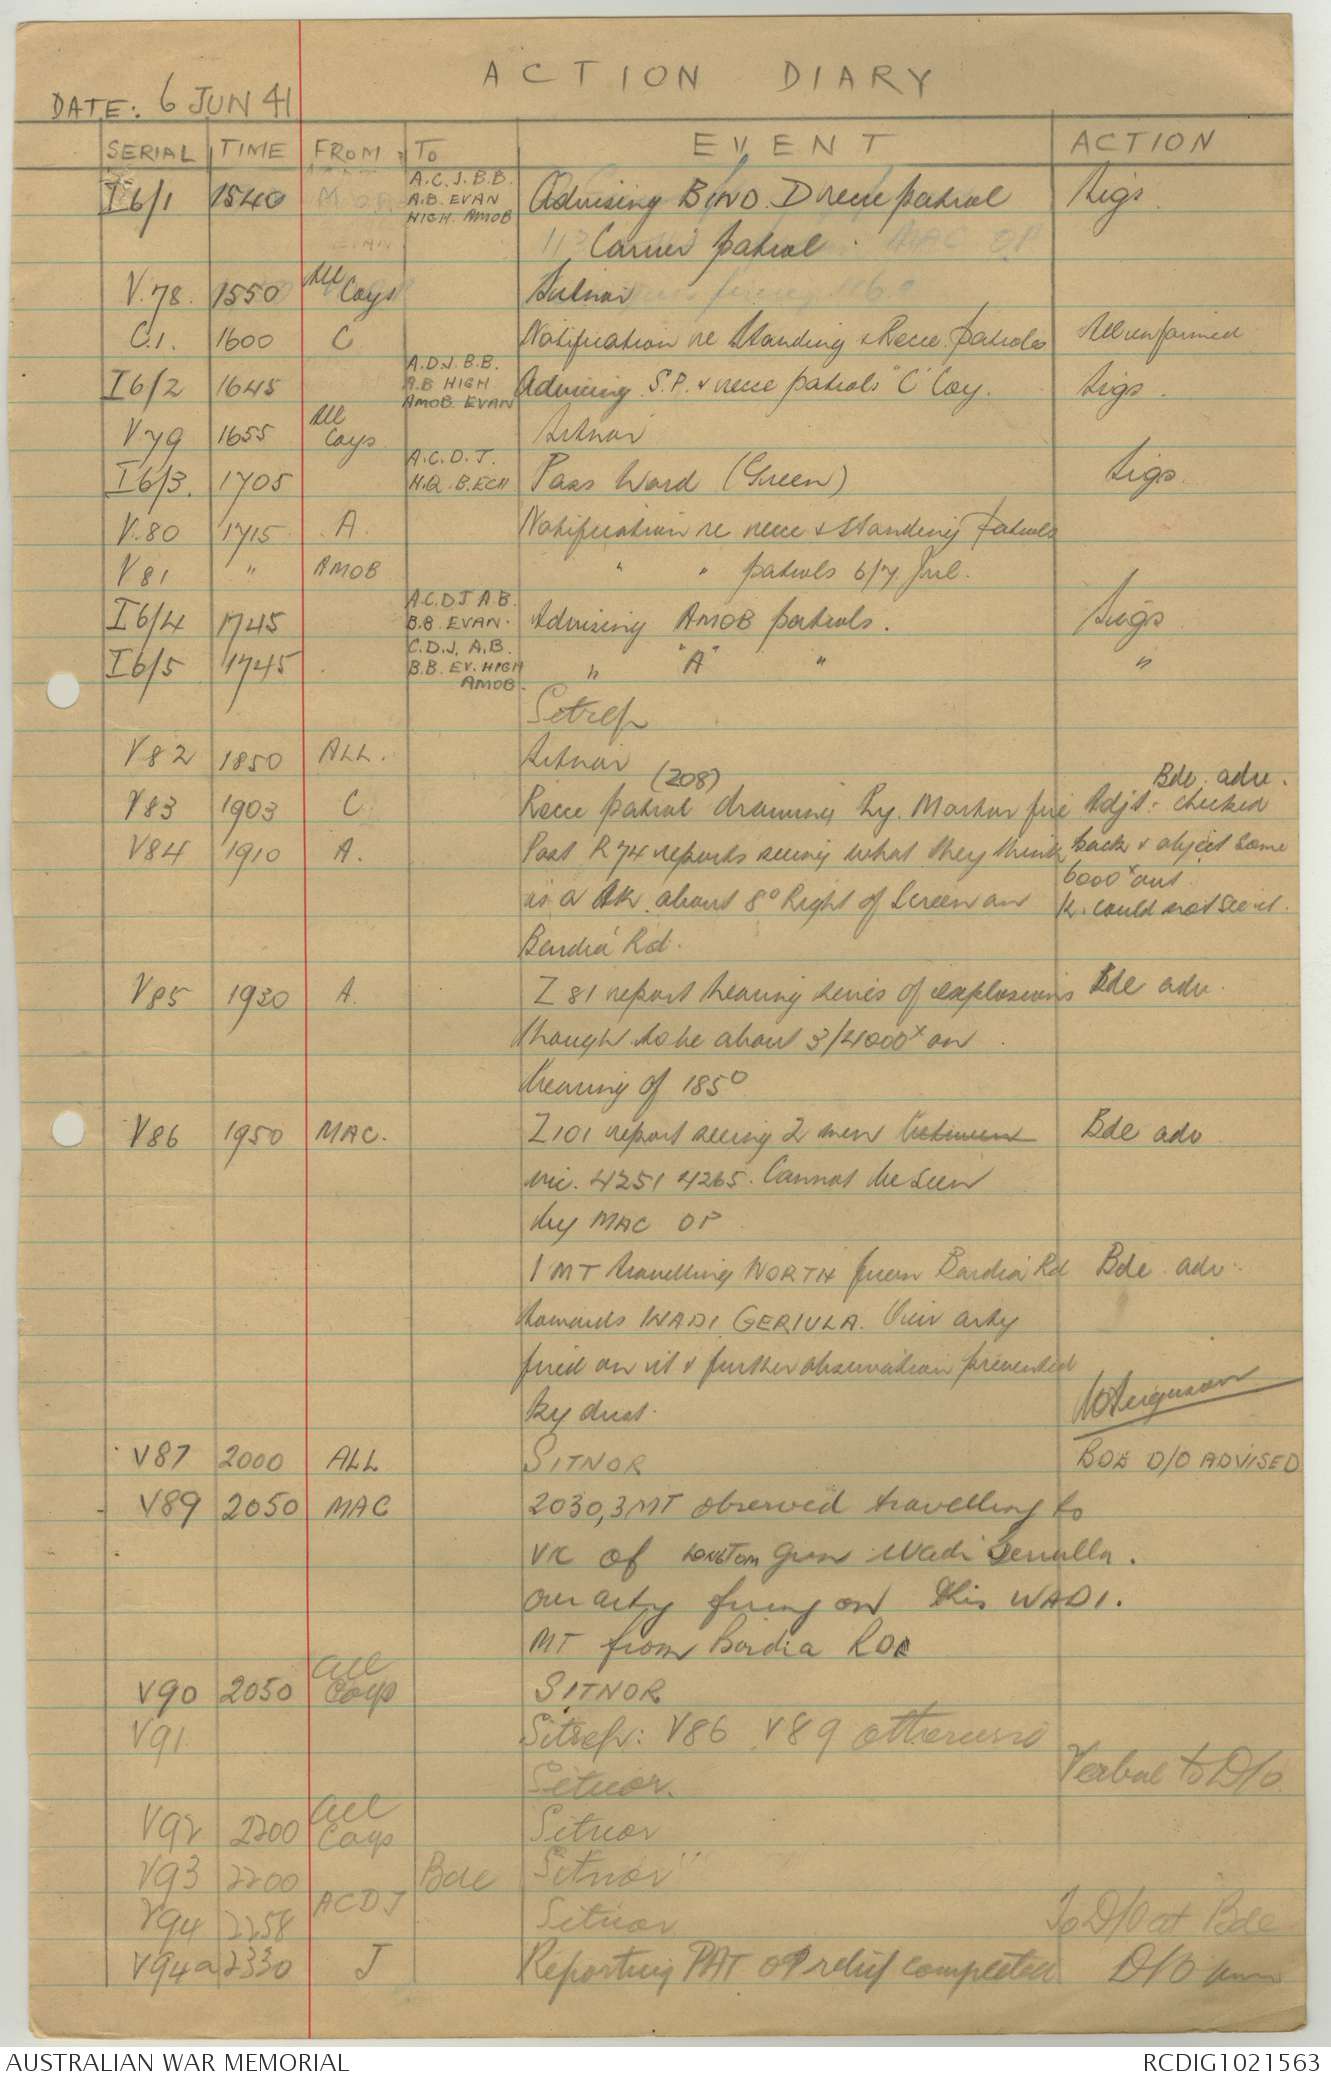 ACTION DIARY
DATE: 6 JUN 41
SERIAL TIME FROM TO EVENT ACTION
A.C.J.B.B.
I6/1 1540 A.B. EVAN Advising BIND. D recce patrol Sigs.
HIGH. AMOB
Carrier patrol.
V.78. 1550 All Coys Sitnor
C.1. 1600 C Notification re Standing & Recce. patrols All informed
A.D.J.B.B.
I6/2 1645 A.B HIGH Advising S.P. & recce patrols "C" Coy. Sigs.
AMOB. EVAN
V79 1655 All Coys Sitnor
A.C.D.J.
I6/3. 1705 H.Q. B.ECH Pass Word (Green) Sigs.
V.80 1715 A. Notification re recce & standing patrols
V81 " AMOB " " patrols 6/7 Jul.
A.C.D J A.B.
I6/4 1745 B.B. EVAN. Advising AMOB patrols. Sigs
C.D.J. A.B.
I6/5 1745 B.B. EV. HIGH " "A" " "
AMOB.
Sitrep
V82 1850 ALL. Sitnor
(Z08) Bde. adv.
V83 1903 C Recce patrol drawing Hy. Mortar fire Adjt. checked
V84 1910 A. Post R74 reports seeing what they think back & object some
6000x out
is a tk. about 8° Right of Screen on K. could not see it.
Bardia Rd.
V85 1930 A. Z81 report hearing series of explosions Bde adv.
thought to be about 3/4000x on
bearing of 185°
V86 1950 MAC. Z101 report seeing 2 men between Bde adv
vic. 4251 4265. Cannot be seen
by MAC OP
1 MT travelling NORTH from Bardia Rd Bde. adv.
towards WADI GERIULA. Our arty
fired on it & further observation prevented
by dust. Ferguson
V87 2000 ALL SITNOR BDE D/O ADVISED
V89 2050 MAC 2030, 3 MT observed travelling to
vic of LONGTOM gun Wadi Geriulla.
our arty firing on this WADI.
MT from Bardia RD
V90 2050 All Coys SITNOR
V91 Sitrep: V86 V89 otherwise
Sitnor. Verbal to D/O.
V92 2200 All Coys Sitnor
V93 2200 Bde Sitnor"
V94 2258 ACDJ Sitnor To D/O at Bde
V94a 2330 J Reporting PAT OP relief completed D/O
AUSTRALIAN WAR MEMORIAL RCDIG1021563